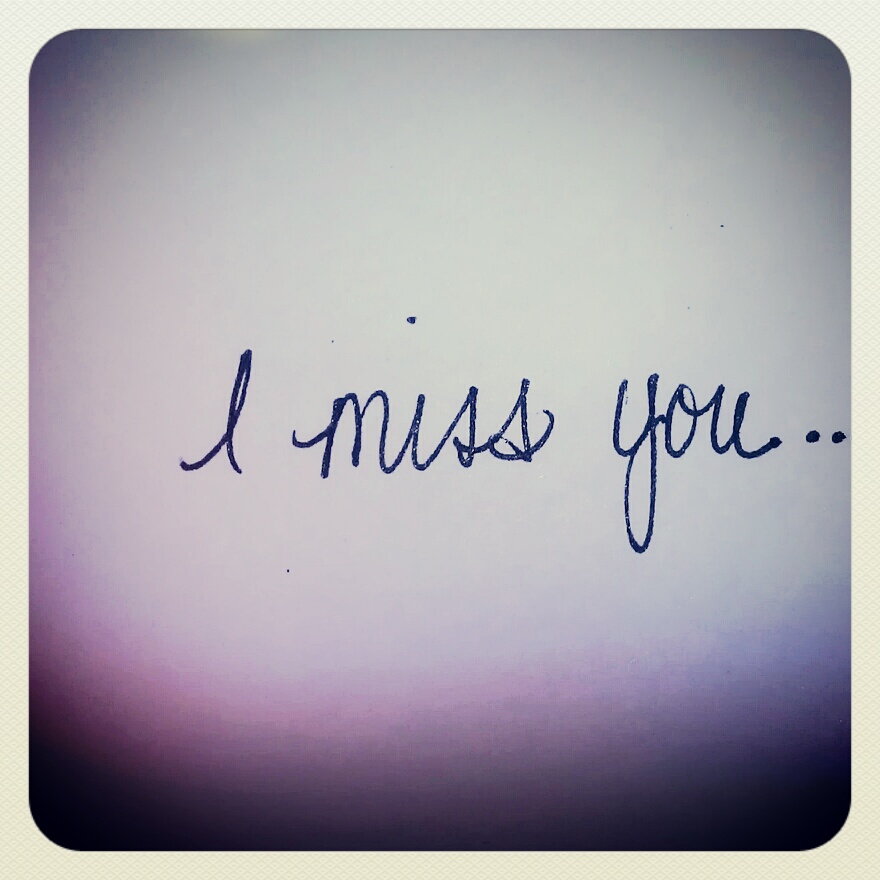 I miss you...